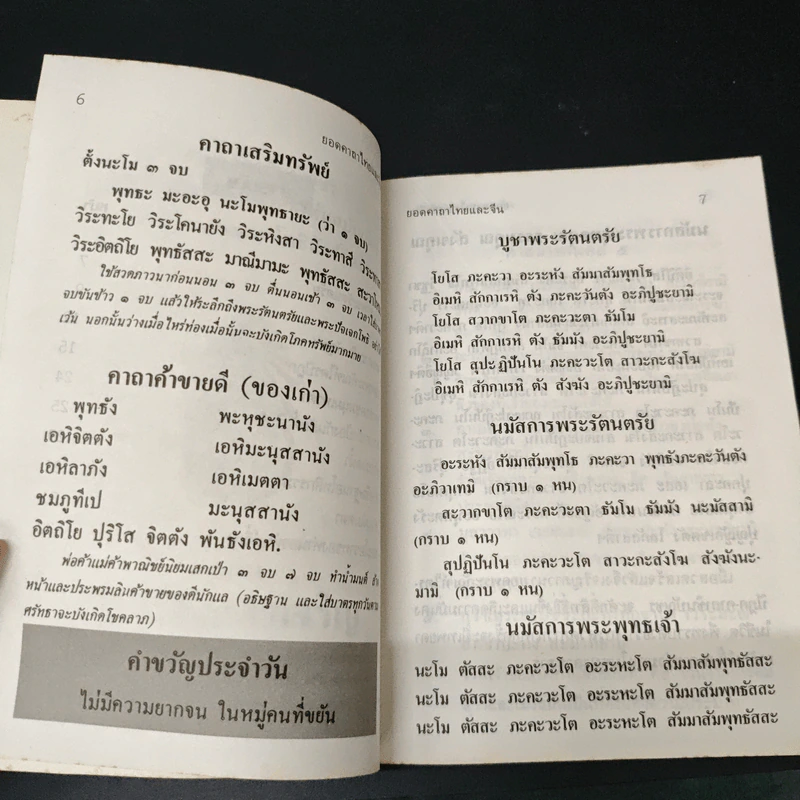 6
ยอดคาถาไทยและ
คาถาเสริมทรัพย์
ตั้งนะโม ๓ จบ
พุทธะ มะอะอุ นะโมพุทธายะ (ว่า ๑ จบ)
วิระทะโย วิระโคนายัง วิระหิงสา วิระทาสี วิระทา
วิระอิตถิโย พุทธัสสะ มาณีมามะ พุทธัสสะ
ใช้สวดภาวนาก่อนนอน ๓ จบ ตื่นนอนเช้า ๓ จบ
จบขันข้าว ๑ จบ แล้วให้ระลึกถึงพระรัตนตรัยและพระปัจเจกโพธิ
เว้น นอกนั้นว่างเมื่อไหร่ท่องเมื่อนั้นจะบังเกิดโภคทรัพย์มากมาย
คาถาค้าขายดี (ของเก่า)
พุทธัง พะหุชะนานัง
เอหิจิตตัง เอหิมะนุสสานัง
เอหิลาภัง เอหิเมตตา
ชมภูทีเป มะนุสสานัง
อิตถิโย ปุริโส จิตตัง พันธังเอหิ.
พ่อค้าแม่ค้าพาณิชย์นิยมเสกเป่า ๓ จบ ๗ จบ ทำน้ำมนต์
หน้าและประพรมสินค้าขายของดีนักแล (อธิษฐาน และใส่บาตรทุกวันตาม
ศรัทธาจะบังเกิดโชคลาภ)
คำขวัญประจำวัน
ไม่มีความยากจน ในหมู่คนที่ขยัน
ยอดคาถาไทยและจีน
7
บูชาพระรัตนตรัย
โยโส ภะคะวา อะระหัง สัมมาสัมพุทโธ
อิเมหิ สักกาเรหิ ตัง ภะคะวันตัง อะภิปูชะยามิ
โยโส สวากขาโต ภะคะวะตา ธัมโม
อิเมหิ สักกาเรหิ ตัง ธัมมัง อะภิปูชะยามิ
โยโส สุปะฏิปันโน ภะคะวะโต สาวะกะสังโฆ
อิเมหิ สักกาเรหิ ตัง สังฆัง อะภิปูชะยามิ
นมัสการพระรัตนตรัย
อะระหัง สัมมาสัมพุทโธ ภะคะวา พุทธังภะคะวันตัง
อะภิวาเทมิ (กราบ ๑ หน)
สะวากขาโต ภะคะวะตา ธัมโม ธัมมัง นะมัสสามิ
(กราบ ๑ หน)
สุปฏิปันโน ภะคะวะโต สาวะกะสังโฆ สังฆังนะ-
มามิ (กราบ ๑ หน)
นมัสการพระพุทธเจ้า
นะโม ตัสสะ ภะคะวะโต อะระหะโต สัมมาสัมพุทธัสสะ
นะโม ตัสสะ ภะคะวะโต อะระหะโต สัมมาสัมพุทธัสสะ
นะโม ตัสสะ ภะคะวะโต อะระหะโต สัมมาสัมพุทธัสสะ